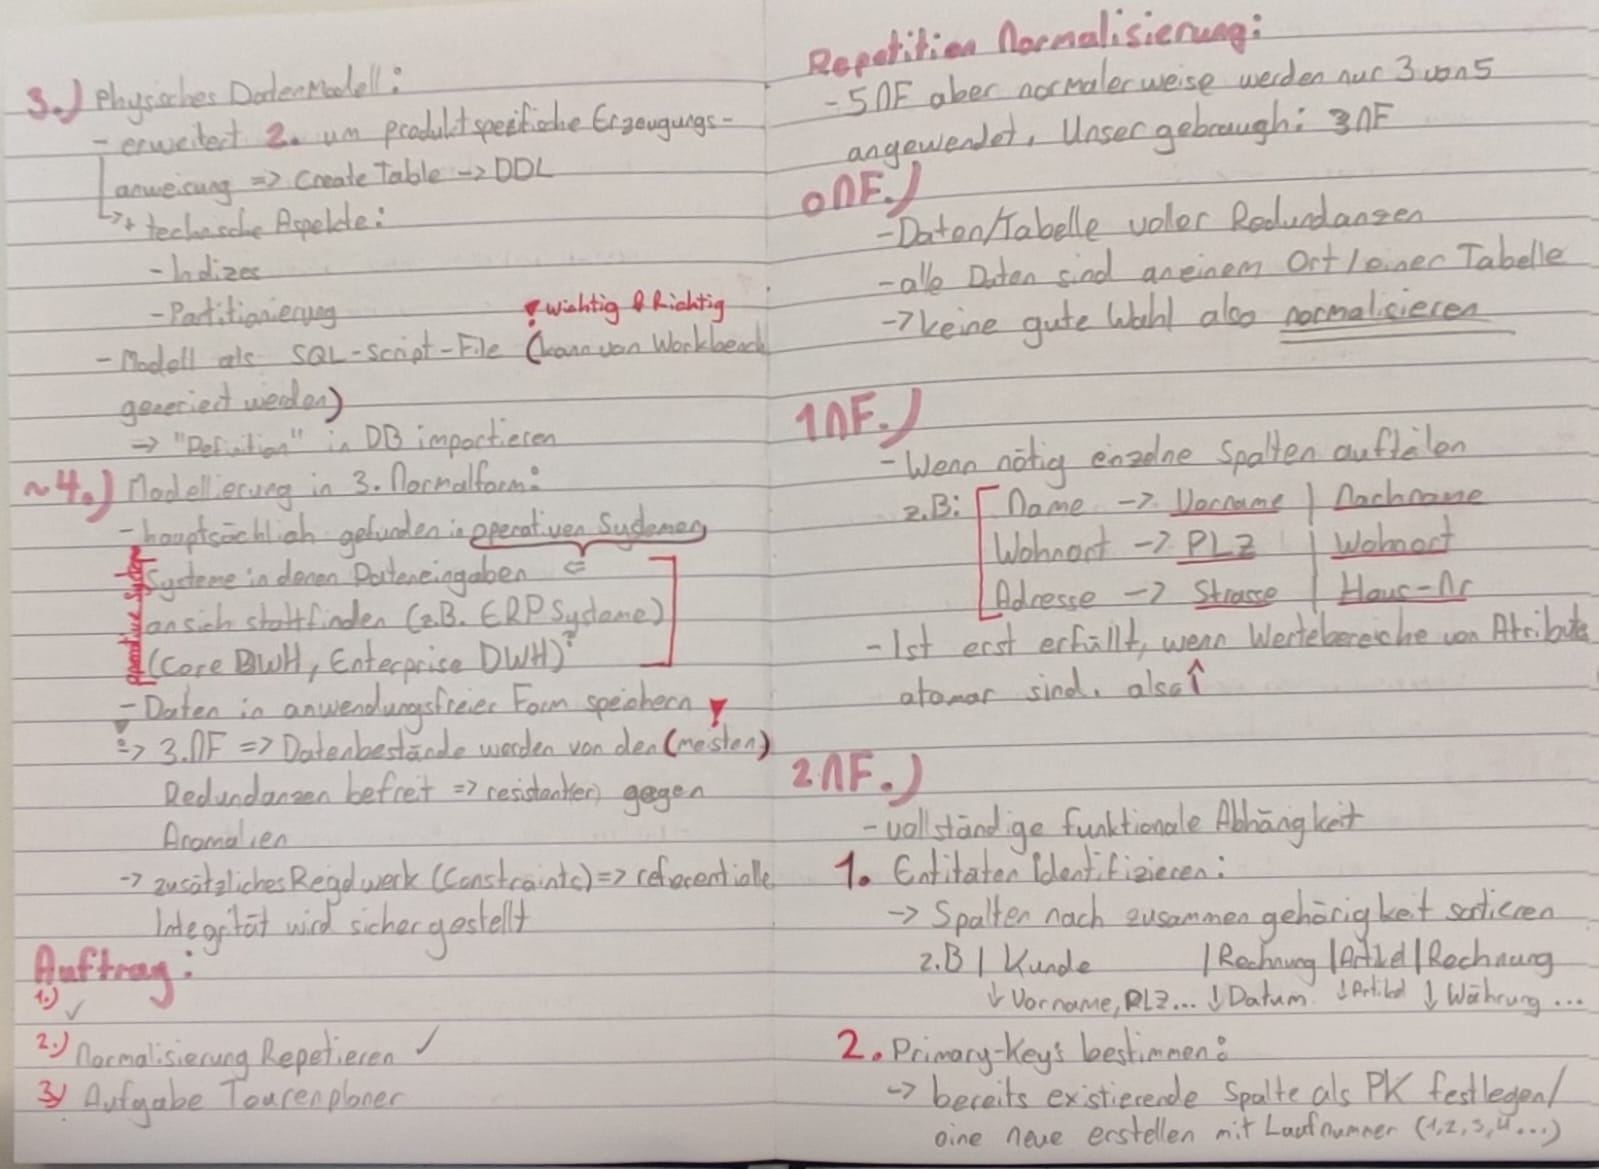 3.) Physisches DatenModell:
- erweitert 2. um produktspezifische Erzeugungs-
anweisung => Create Table -> DDL
-> + technische Aspekte:
- Indizes
- Partitionierung
! Wichtig & Richtig
- Modell als SQL-Script-File (kann von Workbench
generiert werden)
=> "Definition" in DB importieren
~4.) Modellierung in 3. Normalform:
- hauptsächlich gefunden in operativen Systemen
- Systeme in denen Dateneingaben <=
an sich stattfinden (z.B. ERP Systeme)
(Core DWH, Enterprise DWH)?
- Daten in anwendungsfreier Form speichern !
=> 3.NF => Datenbestände werden von den (meisten)
Redundanzen befreit => resistent(er) gegen
Anomalien
-> zusätzliches Regelwerk (Constraints) => referentielle
Integrität wird sichergestellt
Auftrag:
1.) ✓
2.) Normalisierung Repetieren ✓
3) Aufgabe Tourenplaner
Repetition Normalisierung:
- 5 NF aber normalerweise werden nur 3 von 5
angewendet, Unser gebraugh: 3NF
0NF.)
- Daten/Tabelle voler Redundanzen
- alle Daten sind an einem Ort / einer Tabelle
-> keine gute Wahl also normalisieren
1NF.)
- Wenn nötig einzelne Spalten aufteilen
z.B: [ Name -> Vorname | Nachname
Wohnort -> PLZ | Wohnort
Adresse -> Strasse | Haus-Nr
- Ist erst erfüllt, wenn Wertebereiche von Atribute
atomar sind. also ↑
2NF.)
- vollständige funktionale Abhängigkeit
1. Entitäten Identifizieren:
-> Spalten nach zusammengehörigkeit sortieren
z.B | Kunde | Rechnung | Artikel | Rechnung
↓ Vorname, PLZ... ↓ Datum ↓ Artikel ↓ Währung ...
2. Primary-Key's bestimmen:
-> bereits existierende Spalte als PK festlegen/
eine neue erstellen mit Laufnummer (1,2,3,4...)